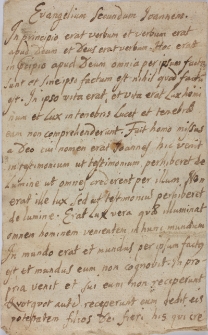 Evangelium secundum Joannem.
In principio erat verbum et verbum erat
apud Deum et Deus erat verbum. Hoc erat
in principio apud Deum omnia per ipsum facta
sunt et sine ipso factum est nihil quod factũ
est. In ipso vita erat, et vita erat Lux homi
num et Lux in tenebris Lucet et tenebræ
eam non comprehenderunt. Fuit homo missus
a Deo cui nomen erat Joannes hic venit
in testimonium ut testimonium perhiberet de
Lumine ut omnes crederent per illum. Non
erat ille lux sed ut testimonium perhiberet
de lumine. Erat Lux vera quæ illuminat
omnem hominem venientem in hunc mundum
In mundo erat et mundus per ipsum factus
est et mundus eum non cognovit. In pro
pria venit et sui eum non receperunt
quotquot autem receperunt eum dedit eis
potestatem filios Dei fieri his qui cre